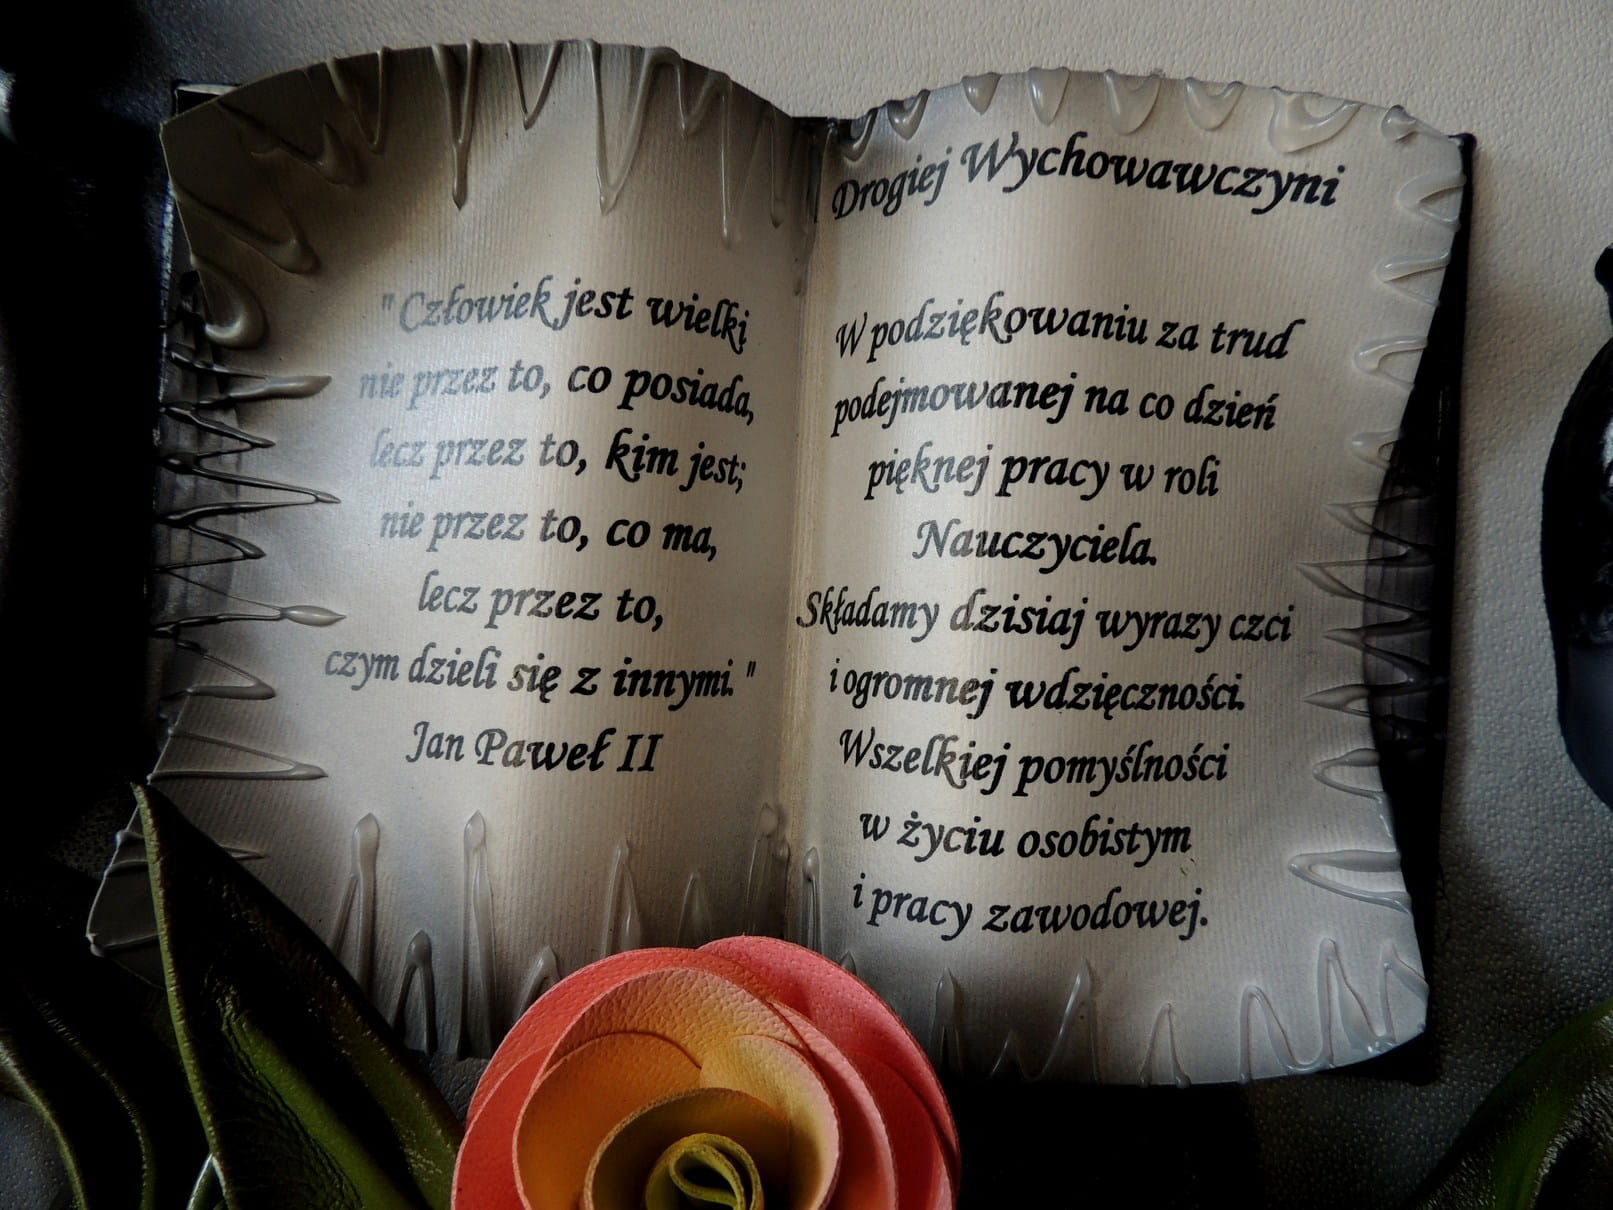 "Człowiek jest wielki
nie przez to, co posiada,
lecz przez to, kim jest;
nie przez to, co ma,
lecz przez to,
czym dzieli się z innymi."
Jan Paweł II
Drogiej Wychowawczyni
W podziękowaniu za trud
podejmowanej na co dzień
pięknej pracy w roli
Nauczyciela.
Składamy dzisiaj wyrazy czci
i ogromnej wdzięczności.
Wszelkiej pomyślności
w życiu osobistym
i pracy zawodowej.